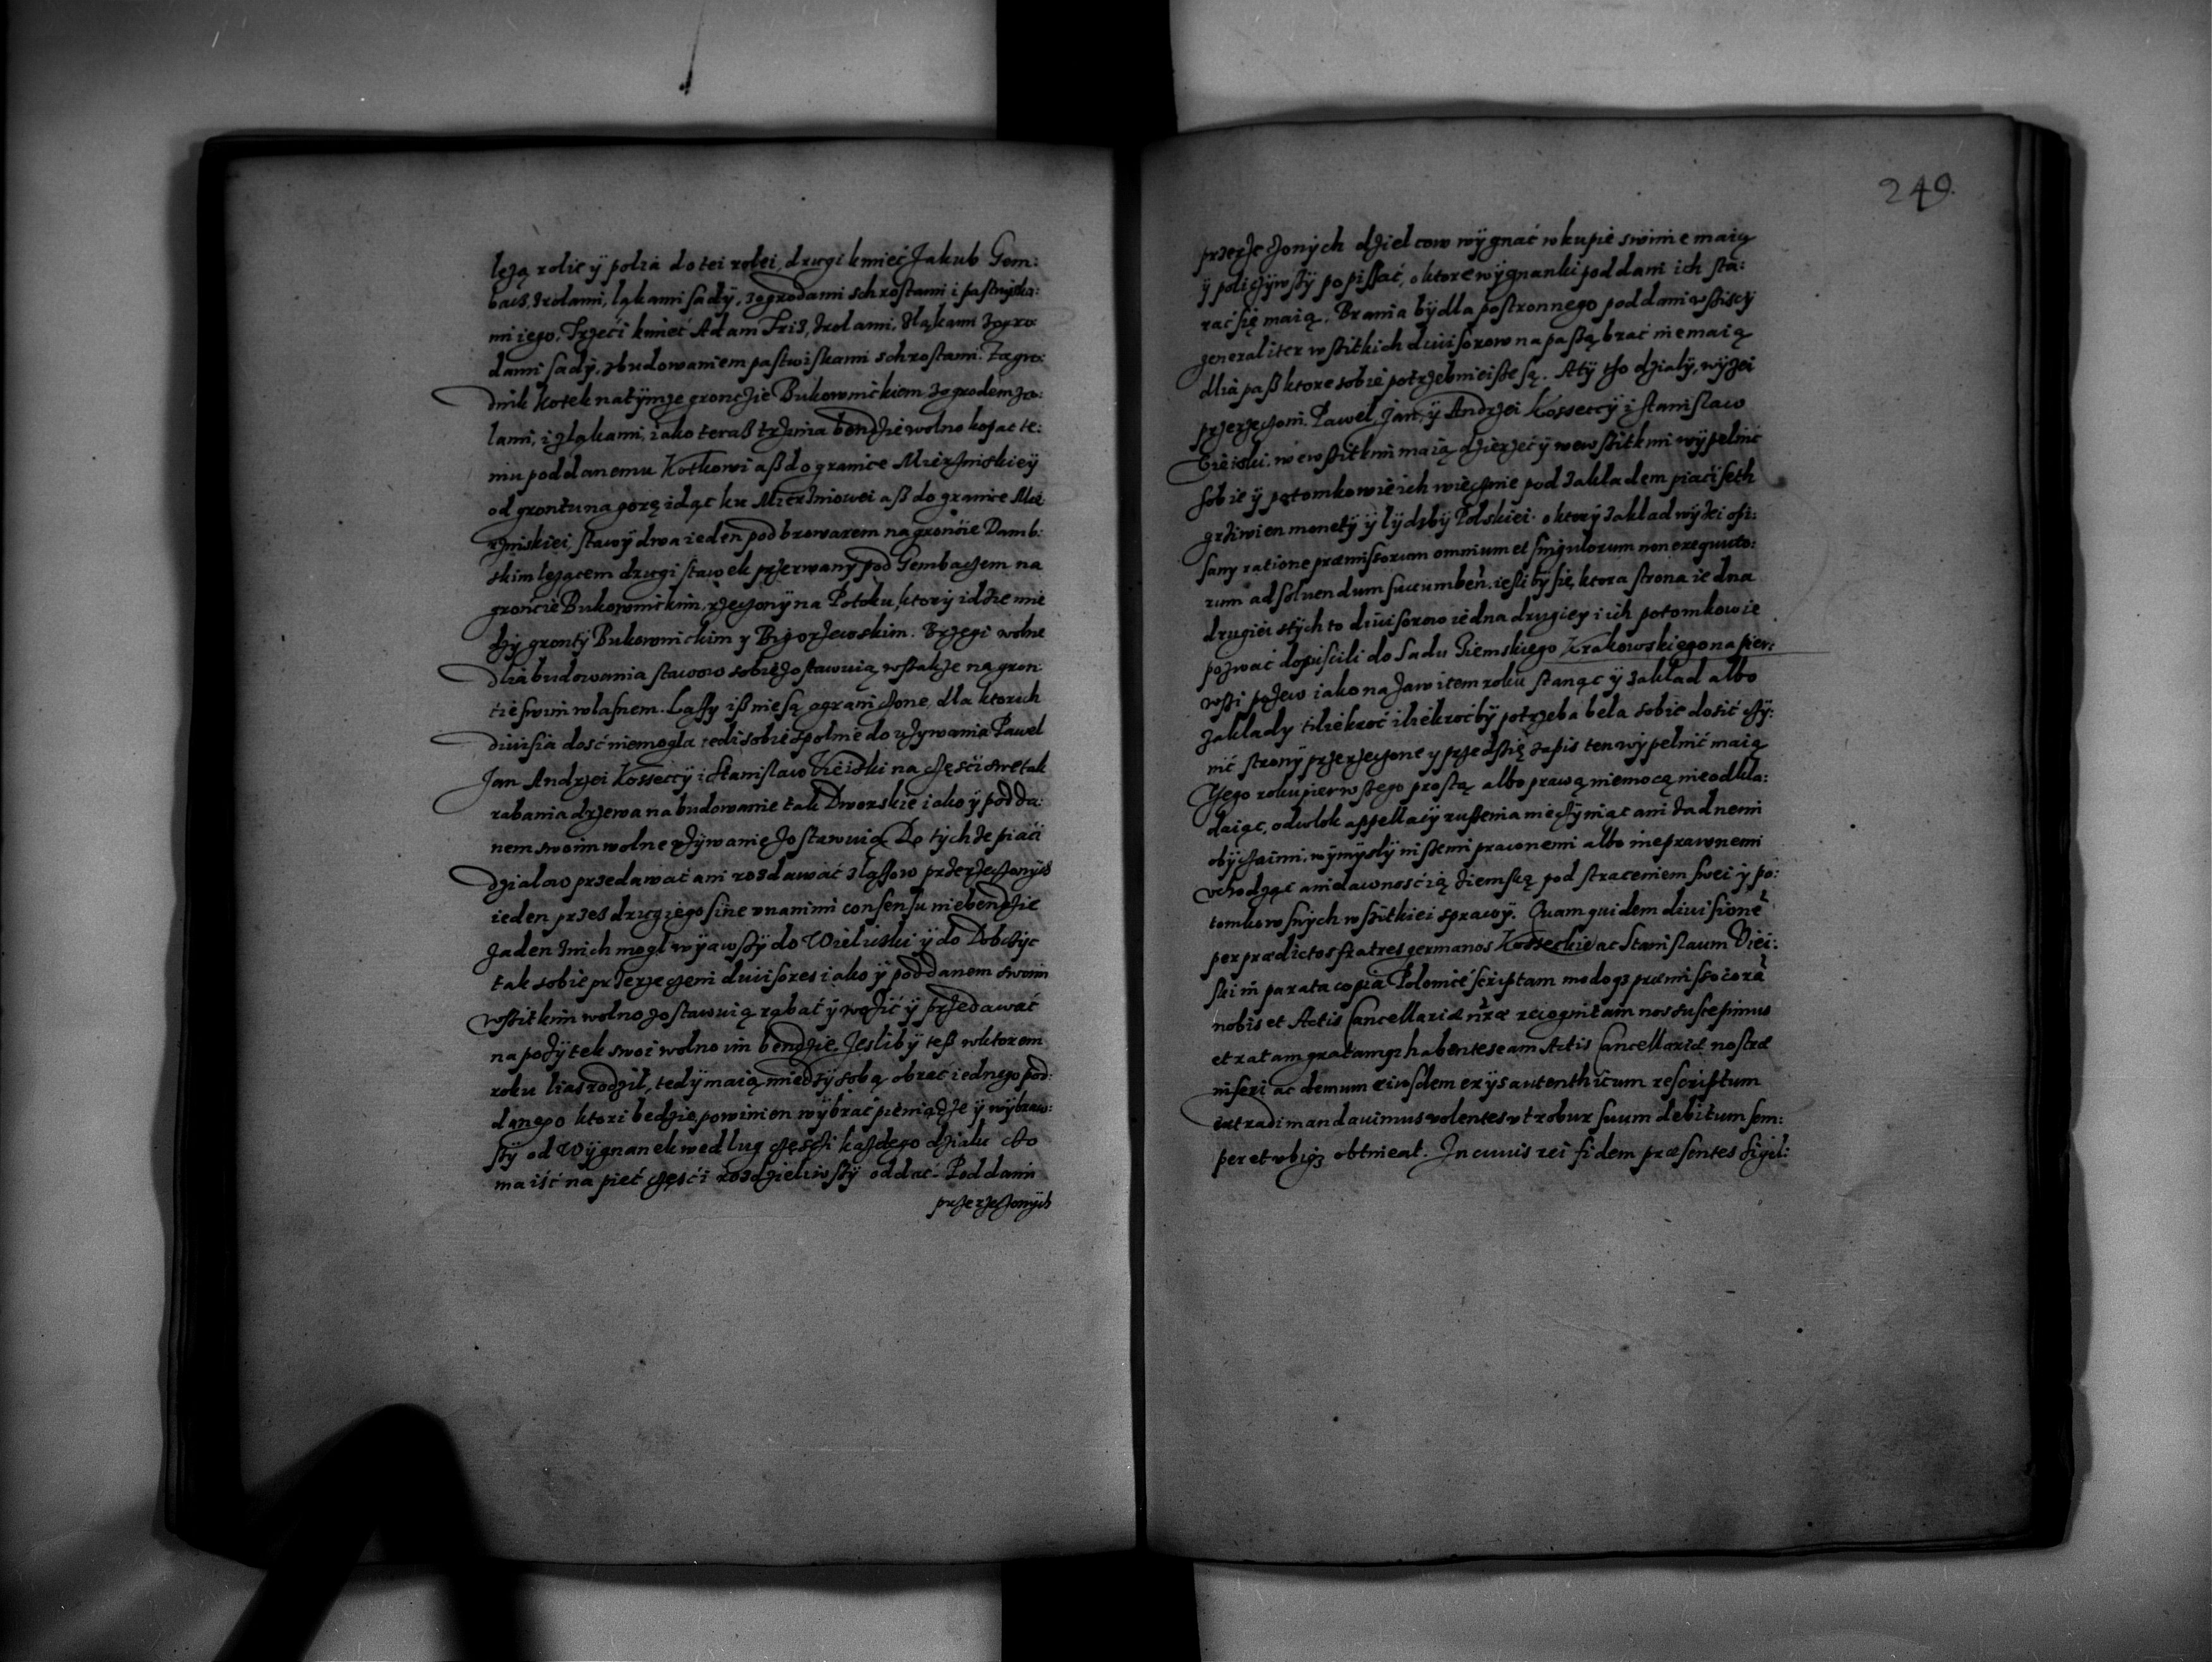 leżą rolie ÿ polia do tei rolei, drugi kmieć Jakub Gem:
bacz, zrolami, ląkami sadÿ, zogrodami schrostami i pastwiska:
mi iego. Trzeci kmieć Adam Friz, zrolami, zląkami zogro:
dami sadÿ, zbudowaniem pastwiskami schrostami. Zagro:
dnik Kotek natÿmze groncżie Bukownickiem zogrodem zro:
lami, i zląkami, iako teraß trżima bendżie wolno kopac te:
mu poddanemu Kotkowi aß do granice Mierżniskieÿ
od grontu na gorę idąc ku Mierżniowei aß do granice Mie
rżniskiei, stawÿ dwa ieden pod browarem na grońcie Damb:
skim leżącem drugi stawek przerwanÿ pod Gembaczem na
grońcie Bukownickim, rzeczonÿ na Potoku, ktorÿ idzie mie
dzÿ grontÿ Bukownickim y Bigorzewskim. Brzegi wolne
dlia budowania stawow sobie zostawuią, wßakze na gron:
cie swim wlasnem. Lassy iß nie są ograniczone, dla ktorich
diuisia dość niemogla, tedi sobie spolnie do używania Pawel
Jan Andrzei Kosseccÿ i Stanislaw Vieiski na częsci swe tak
rabania drzewa na budowanie tak Dworskie iako ÿ podda:
nem swoim wolne vżÿwanie zostawuią. Do tÿch że piaći
dzialow przedawać ani rozdawać zlassow przerzeczonÿch
ieden przes drugiego sine vnanimi consensu niebendzie
żaden znich mogl wÿiawßÿ do Wieliczki ÿ do Dobczÿc
tak sobie przerzeczeni diuisores iako ÿ poddanem swoim
wßitkim wolno zostawuią rąbać ÿ wozić ÿ przedawać
na pożÿtek swoi wolno im bendzie. Jesli bÿ teß wktorem
roku lias rodzil, tedÿ maią miedzÿ sobą obrać iednego pod:
danego ktori bedzie powinien wÿbrać pieniądze ÿ wÿbraw:
ßÿ od Wÿgnanek wedlug częsczi każdego dzialu cżo
ma iść na pieć częsći rozdzieliwßÿ oddać. Poddani
przerzeczonÿch
249.
przerzeczonÿch dzielcow wÿgnać wkupie swinie maią
ÿ policżÿwßÿ popissać, o ktore wÿgnanki poddani ich sta:
rać się maią. Brania bÿdla postronnego poddani wßiscÿ
generaliter wßitkich diuisorow na paßą brać niemaią
dlia paß ktore sobie potrzebnieiße są. A tÿ tho dzialÿ, wÿżei
przerzeczoni Pawel, Jan, ÿ Andrzei Kosseccÿ i Stanislaw
Vieiski wewßitkim maią dzierżeć ÿ wewßitkim wÿpelnić
sobie ÿ potomkowie ich wiecznie pod zakladem piaci seth
grziwien monetÿ ÿ lÿczbÿ Polskiei. o ktorÿ zaklad wÿżei opi:
sany ratione præmissorum omnium et singulorum non exequuto:
rum ad soluendum succumben. iesli by się, ktora strona iedna
drugiei stÿch to diuisorow iedna drugiey i ich potomkowie
pozwać dopuscili do Sadu Ziemskiego Krakowskiego na pier:
wßi pozew iako na zawitem roku stanąc ÿ zaklad albo
zaklady tiliekroć iliekroć bÿ potrzeba bela sobie dosić czÿ:
nić stronÿ przerzeczone y przedsię zapis ten wÿpelnić maią
Tego roku pierwßego prostą albo prawą niemocą nieodkla:
daiąc, odwlok appellacÿ rußenia nieczÿniąc ani żadnemi
obÿczaimi, wÿmÿslÿ inßemi prawnemi albo nieprawnemi
vchodząc ani dawnosćią ziemską pod straceniem swei ÿ po:
tomkow swÿch wßitkiei sprawÿ. Quam quidem diuisionē
per prædictos fratres germanos Kosseckie ac Stanislaum Viei:
ski in parata copia Polonice scriptam modoq₃ præmisso corā
nobis et Actis Cancellariæ nr̄æ recognitam nos suscepimus
et ratam gratamq₃ habentes eam Actis Cancellariæ nostræ
inseri ac demum eiusdem ex ijs autenthicum rescriptum
extradi mandauimus volentes vt robur suum debitum sem:
per et vbiq₃ obtineat. In cuius rei fidem præsentes sigil: